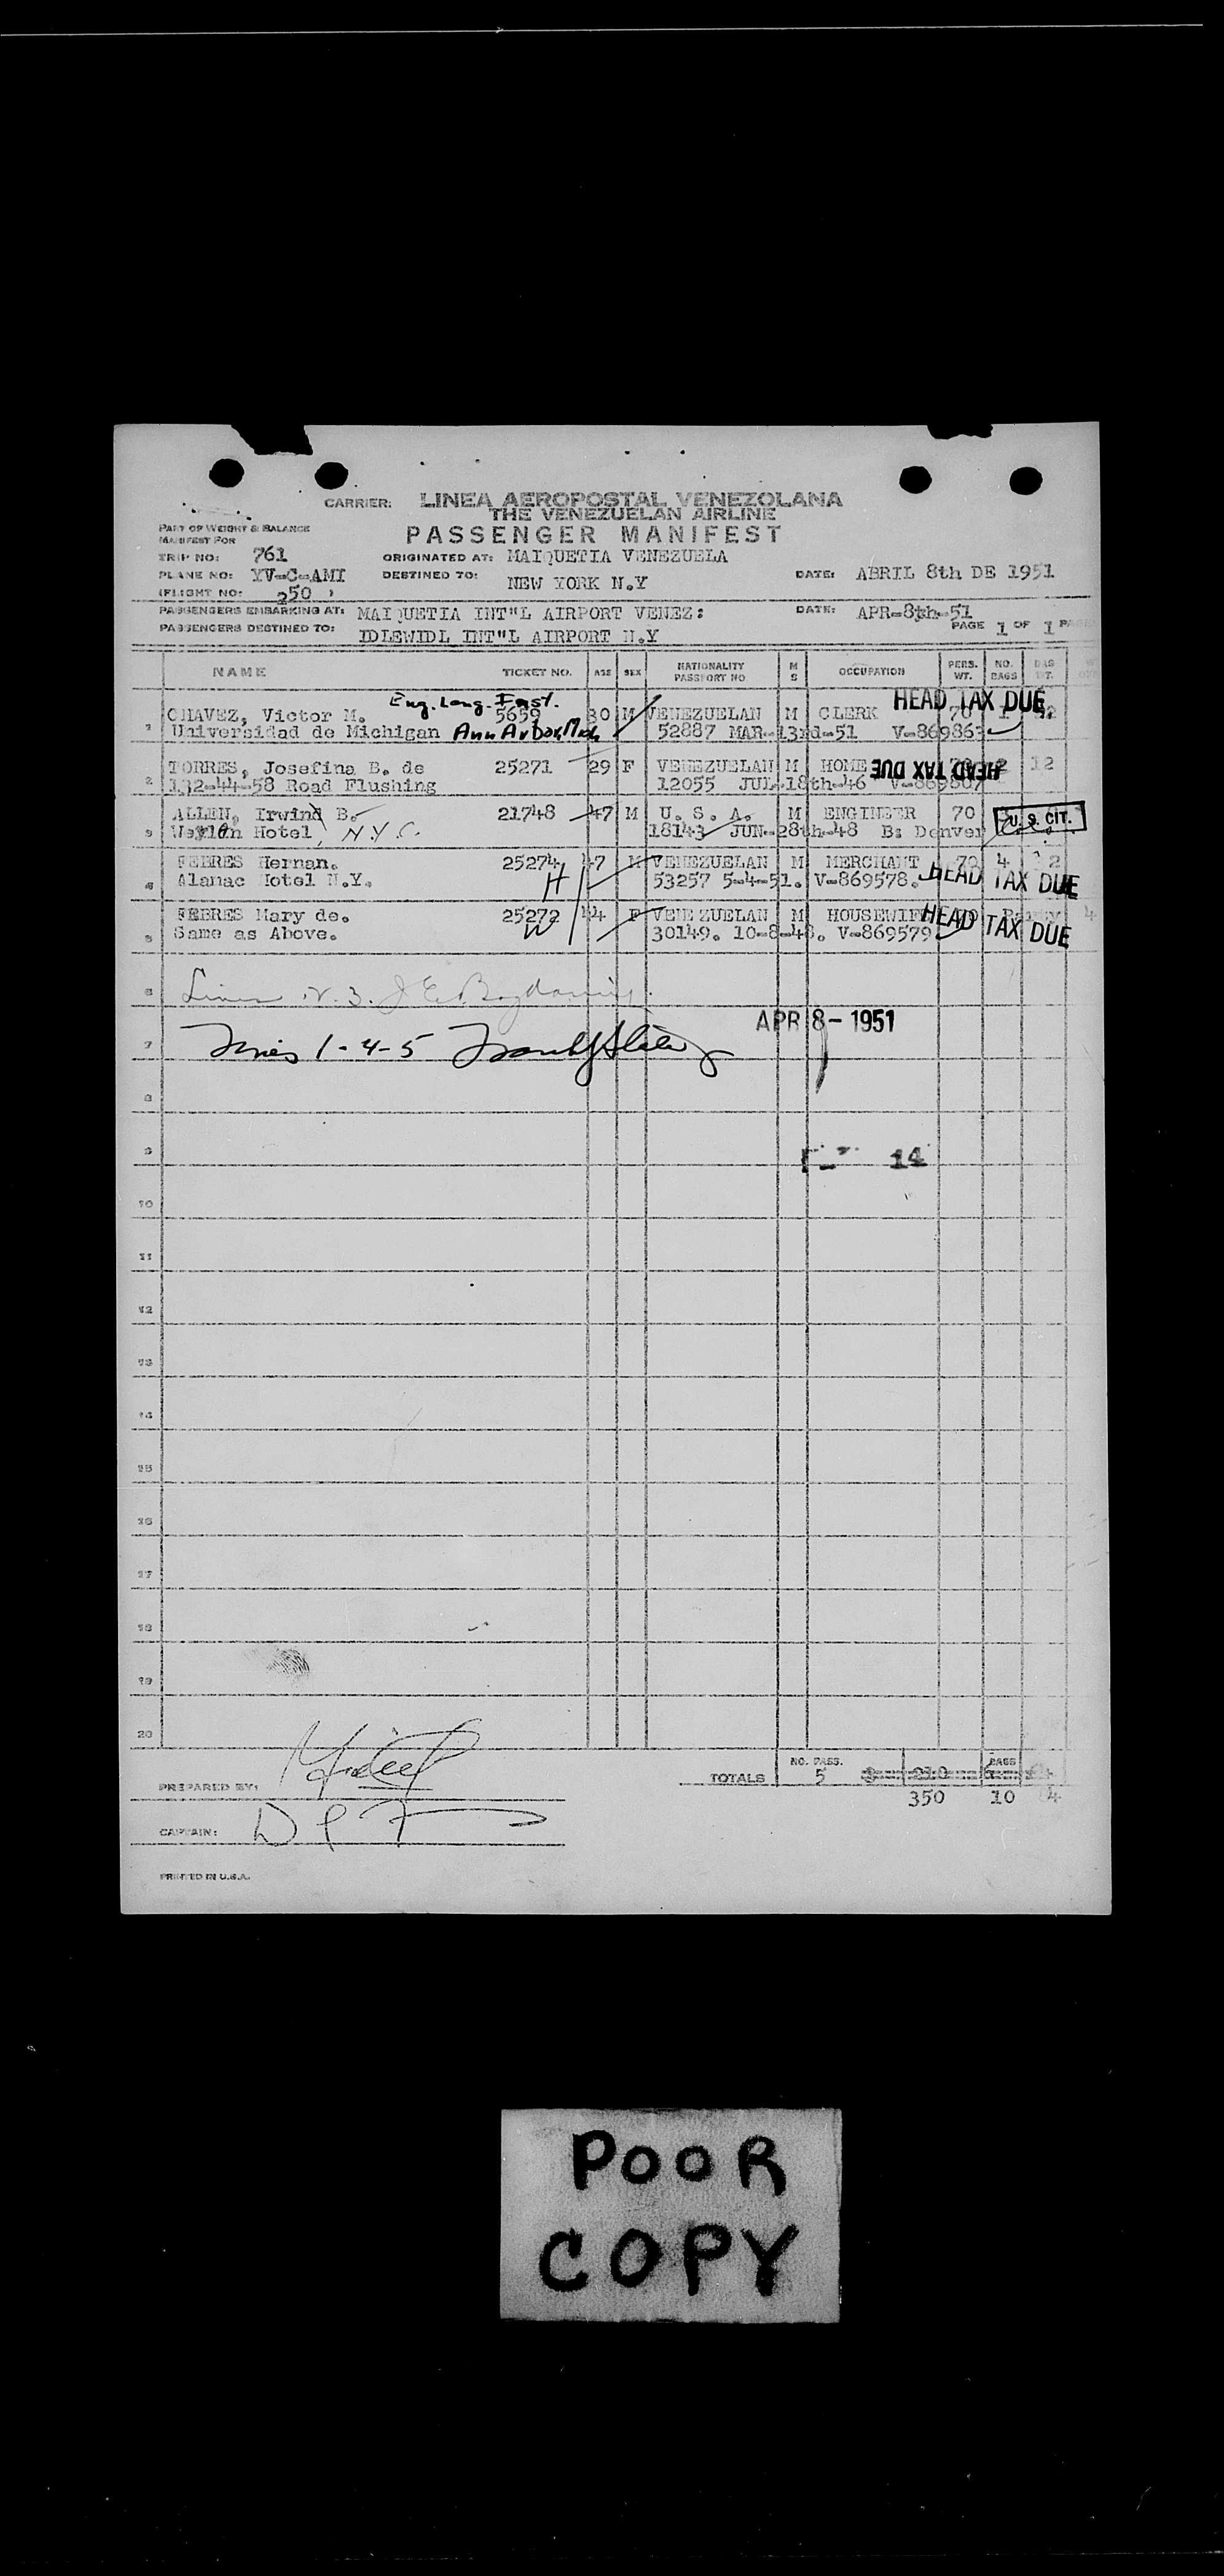 CARRIER: LINEA AEROPOSTAL VENEZOLANA
THE VENEZUELAN AIRLINE
PART OF WEIGHT & BALANCE
MANIFEST FOR
PASSENGER MANIFEST
TRIP NO: 761 ORIGINATED AT: MAIQUETIA VENEZUELA
PLANE NO: YV-C-AMI DESTINED TO: NEW YORK N.Y DATE: ABRIL 8th DE 1951
(FLIGHT NO: 250 )
PASSENGERS EMBARKING AT: MAIQUETIA INT"L AIRPORT VENEZ: DATE: APR-8th-51
PASSENGERS DESTINED TO: IDLEWIDL INT"L AIRPORT N.Y PAGE 1 OF 1
NAME TICKET NO. AGE SEX NATIONALITY PASSPORT NO M S OCCUPATION PERS. WT. NO. BAGS BAG WT.
Eng. Lang. Inst. HEAD TAX DUE
1 CHAVEZ, Victor M. 5659 30 M VENEZUELAN M CLERK 70 1
Universidad de Michigan Ann Arbor, Mich 52887 MAR-13rd-51 V-869863
2 TORRES, Josefina B. de 25271 29 F VENEZUELAN M HOME HEAD TAX DUE 12
132-44-58 Road Flushing 12055 JUL-18th-46 V-869807
3 ALLEN, Irwind B. 21748 47 M U. S. A. M ENGINEER 70 U. S. CIT.
Hotel, N.Y.C. 18143 JUN-28th-48 B: Denver
4 FEBRES Hernan. 25274 47 M VENEZUELAN M MERCHANT 70 4
Alanac Hotel N.Y. H 53257 5-4-51. V-869578. HEAD TAX DUE
5 FEBRES Mary de. 25272 44 F VENEZUELAN M HOUSEWIFE HEAD TAX DUE
Same as Above. W 30149. 10-8-48. V-869579.
6
APR 8 - 1951
7 Lines 1-4-5
8
9 14
10
11
12
13
14
15
16
17
18
19
20
TOTALS NO. PASS. 5 BAGS
350 10
PREPARED BY:
CAPTAIN:
PRINTED IN U.S.A.
POOR
COPY